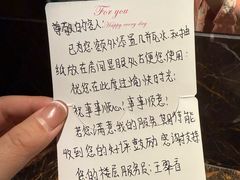 For you
Happy every day
尊敬的客人:
已为您额外添置几瓶水和抽
纸放在房间显眼处方便您使用!
优您在此度过愉快时光!
祝事事顺心,事事顺意!
若您满意我的服务真期待能
收到您的好评鼓励,感谢支持
您的楼层服务员:王